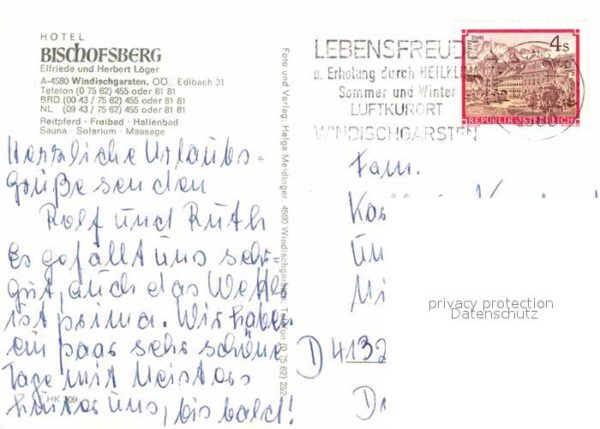 HOTEL
BISCHOFSBERG
Elfriede und Herbert Löger
A-4580 Windischgarsten, OÖ., Edlbach 31
Telefon (0 75 62) 455 oder 81 81
BRD (00 43 / 75 62) 455 oder 81 81
NL (09 43 / 75 62) 455 oder 81 81
Reitpferd · Freibad · Hallenbad
Sauna · Solarium · Massage
Herzliche Urlaubs-
grüße senden
Rolf und Ruth
Es gefällt uns sehr
gut, auch das Wetter
ist prima. Wir haben
ein paar sehr schöne
Tage mit Meisters
hinter uns, bis bald!
HK 709
Foto und Verlag: Helga Meidinger, 4580 Windischgarsten, Telefon (0 75 62) 252
LEBENSFREUDE
u. Erholung durch HEILKL
Sommer und Winter
LUFTKURORT
WINDISCHGARSTEN
4 S
REPUBLIK ÖSTERREICH
Fam.
D 4132
privacy protection
Datenschutz